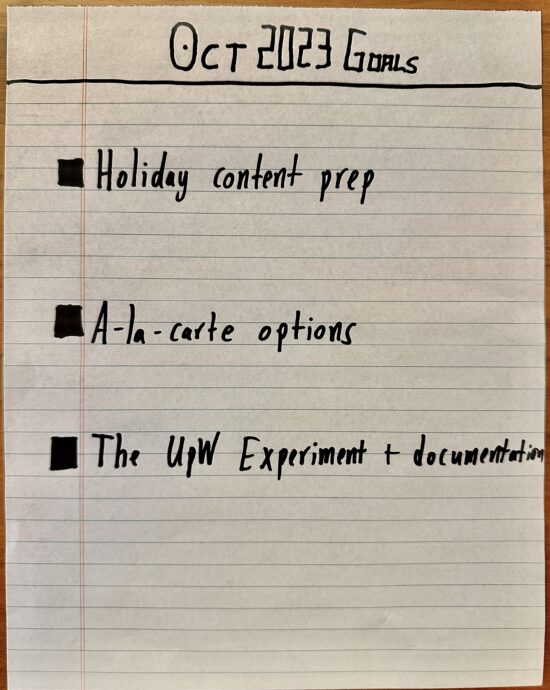 Oct 2023 Goals
Holiday content prep
A-la-carte options
The UpW Experiment + documentation